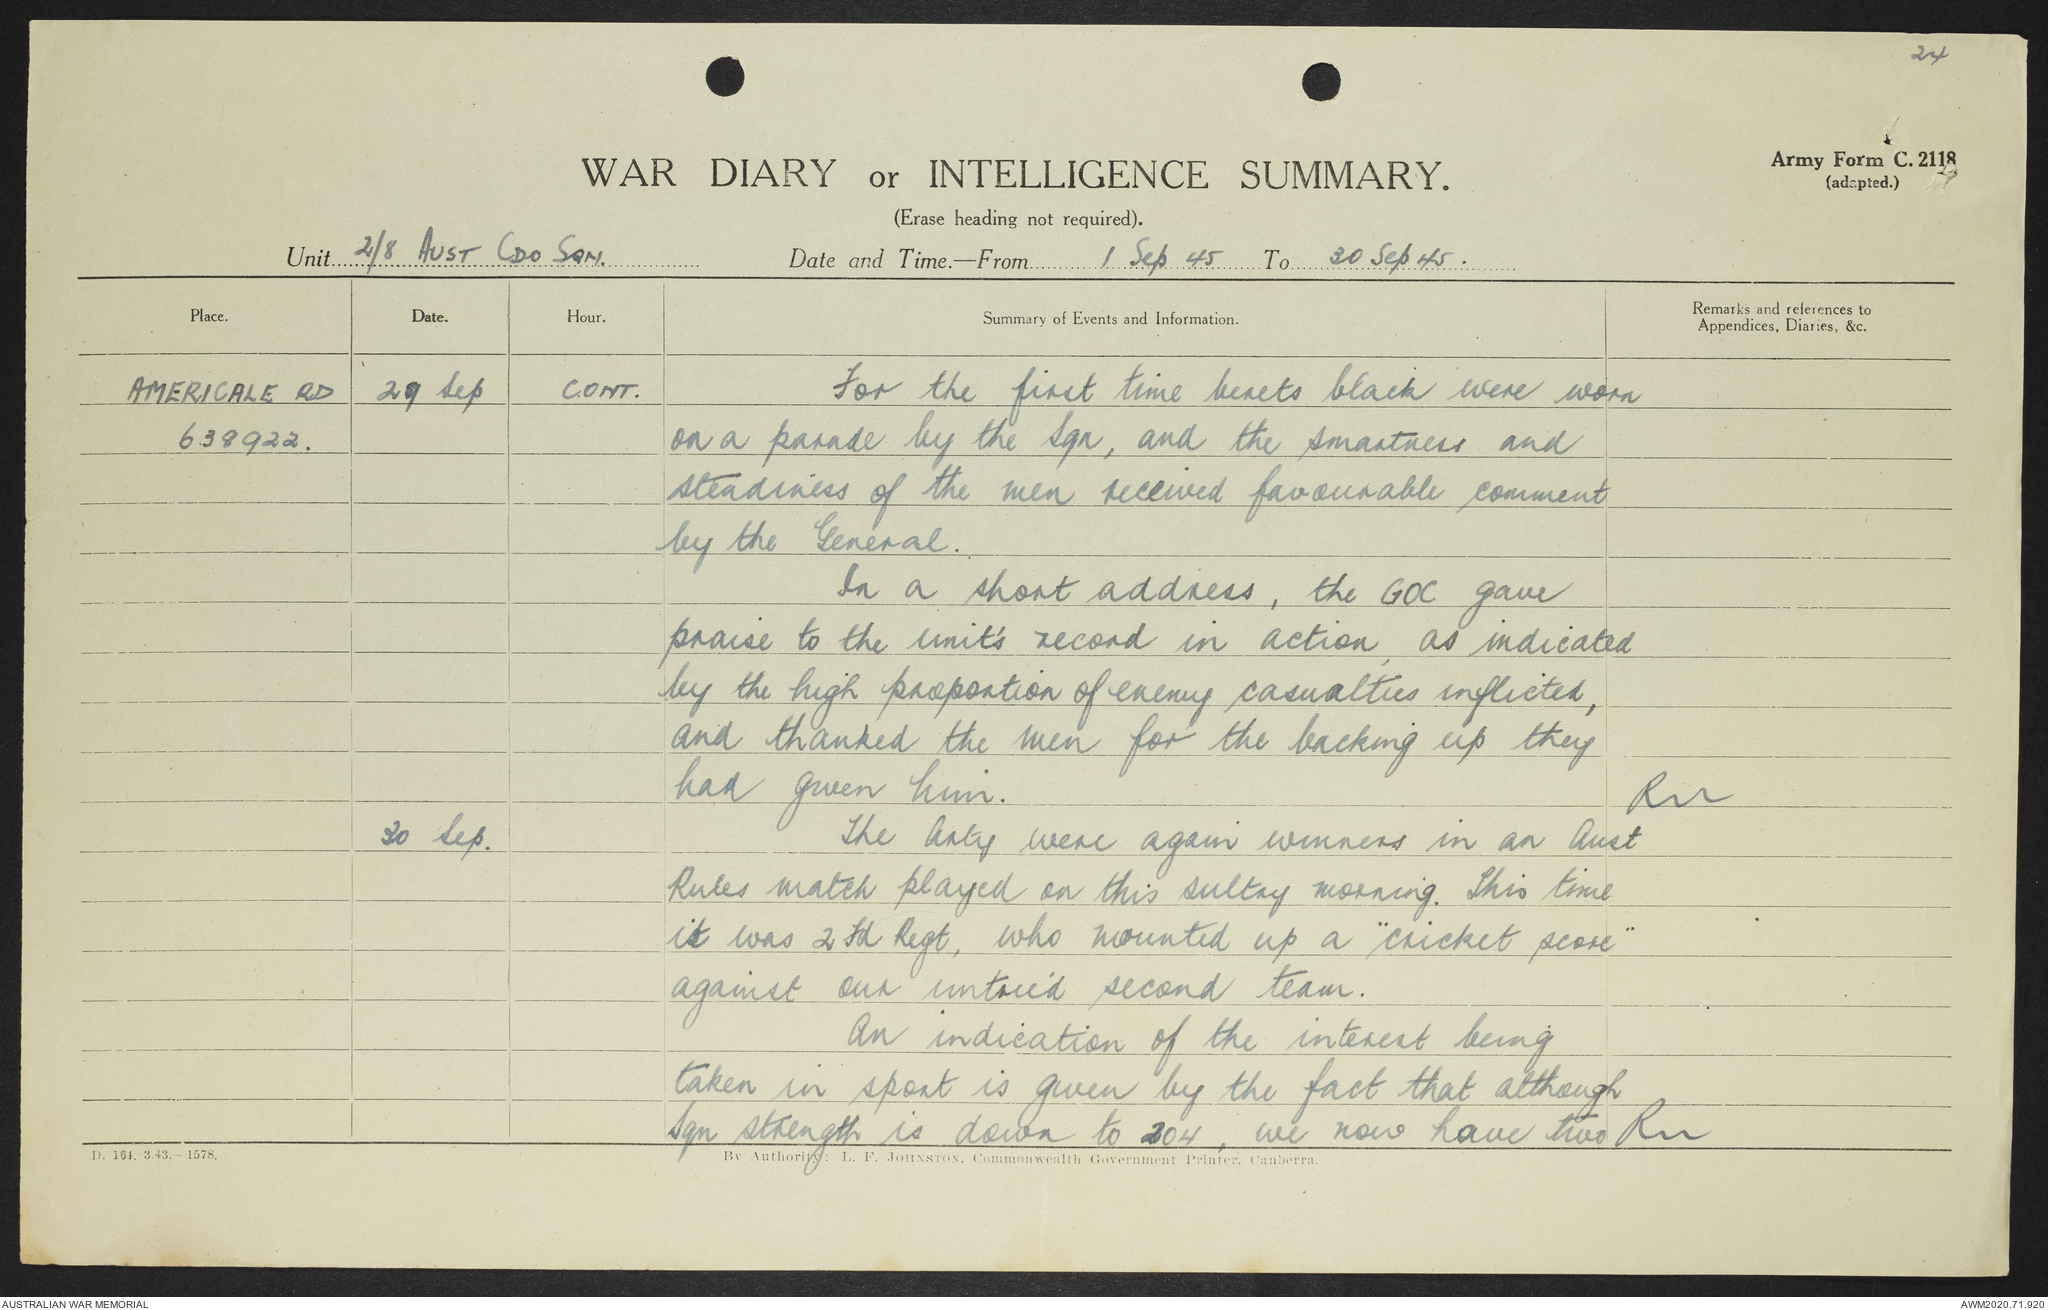 24
Army Form C. 2118
(adapted.)
WAR DIARY or INTELLIGENCE SUMMARY.
(Erase heading not required).
Unit 2/8 AUST CDO SQN. Date and Time.—From 1 Sep 45 To 30 Sep 45.
Place. Date. Hour. Summary of Events and Information. Remarks and references to
Appendices, Diaries, &c.
AMERICALE RD 29 Sep CONT. For the first time berets black were worn
638922. on a parade by the Sqn, and the smartness and
steadiness of the men received favourable comment
by the General.
In a short address, the GOC gave
praise to the unit's record in action, as indicated
by the high proportion of enemy casualties inflicted,
and thanked the men for the backing up they
had given him.
30 Sep. The Arty were again winners in an Aust
Rules match played on this sultry morning. This time
it was 2 Fd Regt, who mounted up a "cricket score"
against our untried second team.
An indication of the interest being
taken in sport is given by the fact that although
Sqn strength is down to 204, we now have two
D. 164. 3.43.—1578. By Authority: L. F. JOHNSTON, Commonwealth Government Printer, Canberra.
AUSTRALIAN WAR MEMORIAL AWM2020.71.920